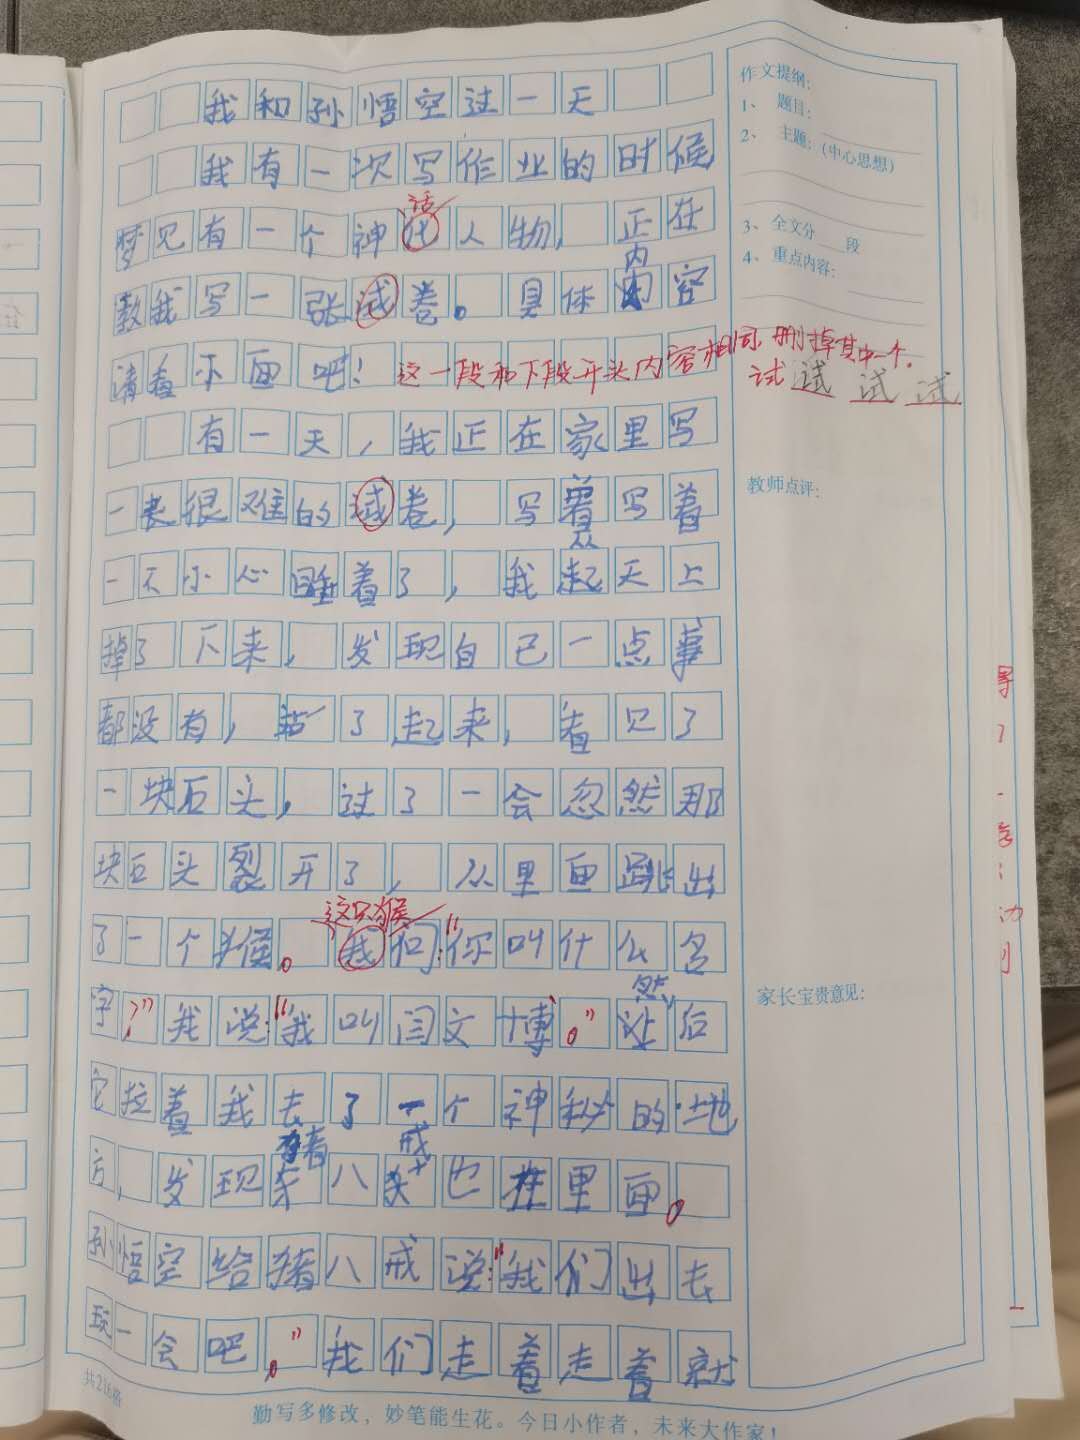 我和孙悟空过一天
我有一次写作业的时候
话
梦见有一个神化人物，正在
内
教我写一张试卷。具体内容
请看下面吧！这一段和下段开头内容相同，删掉其中一个。
试试试试
有一天，我正在家里写
一张很难的试卷，写着写着
从
一不小心睡着了，我起天上
掉了下来，发现自己一点事
都没有，站了起来，看见了
一块石头，过了一会忽然那
块石头裂开了，从里面跳出
这只猴
了一个猴。我问：“你叫什么名
然
字？”我说：“我叫闫文博。”后
它拉着我去了一个神秘的地
猪 戒
方，发现八也在里面。
孙悟空给猪八戒说：“我们出去
玩一会吧。”我们走着走着就
共216格
勤写多修改，妙笔能生花。今日小作者，未来大作家！
作文提纲：
1、 题目：
2、 主题：（中心思想）
3、 全文分 段
4、 重点内容：
教师点评：
家长宝贵意见：